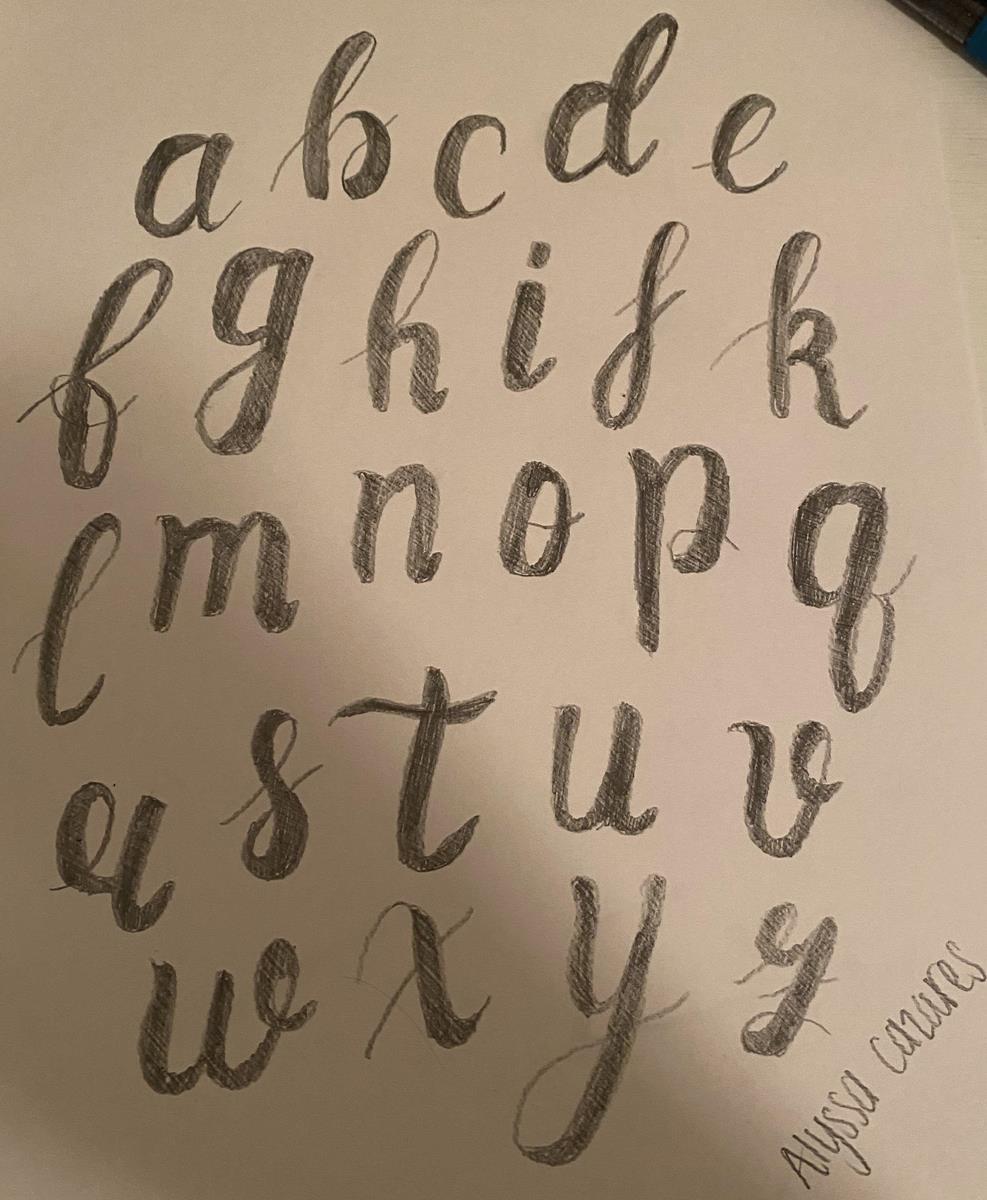 a b c d e
f g h i j k
l m n o p q
r s t u v
w x y z
Alyssa cazares